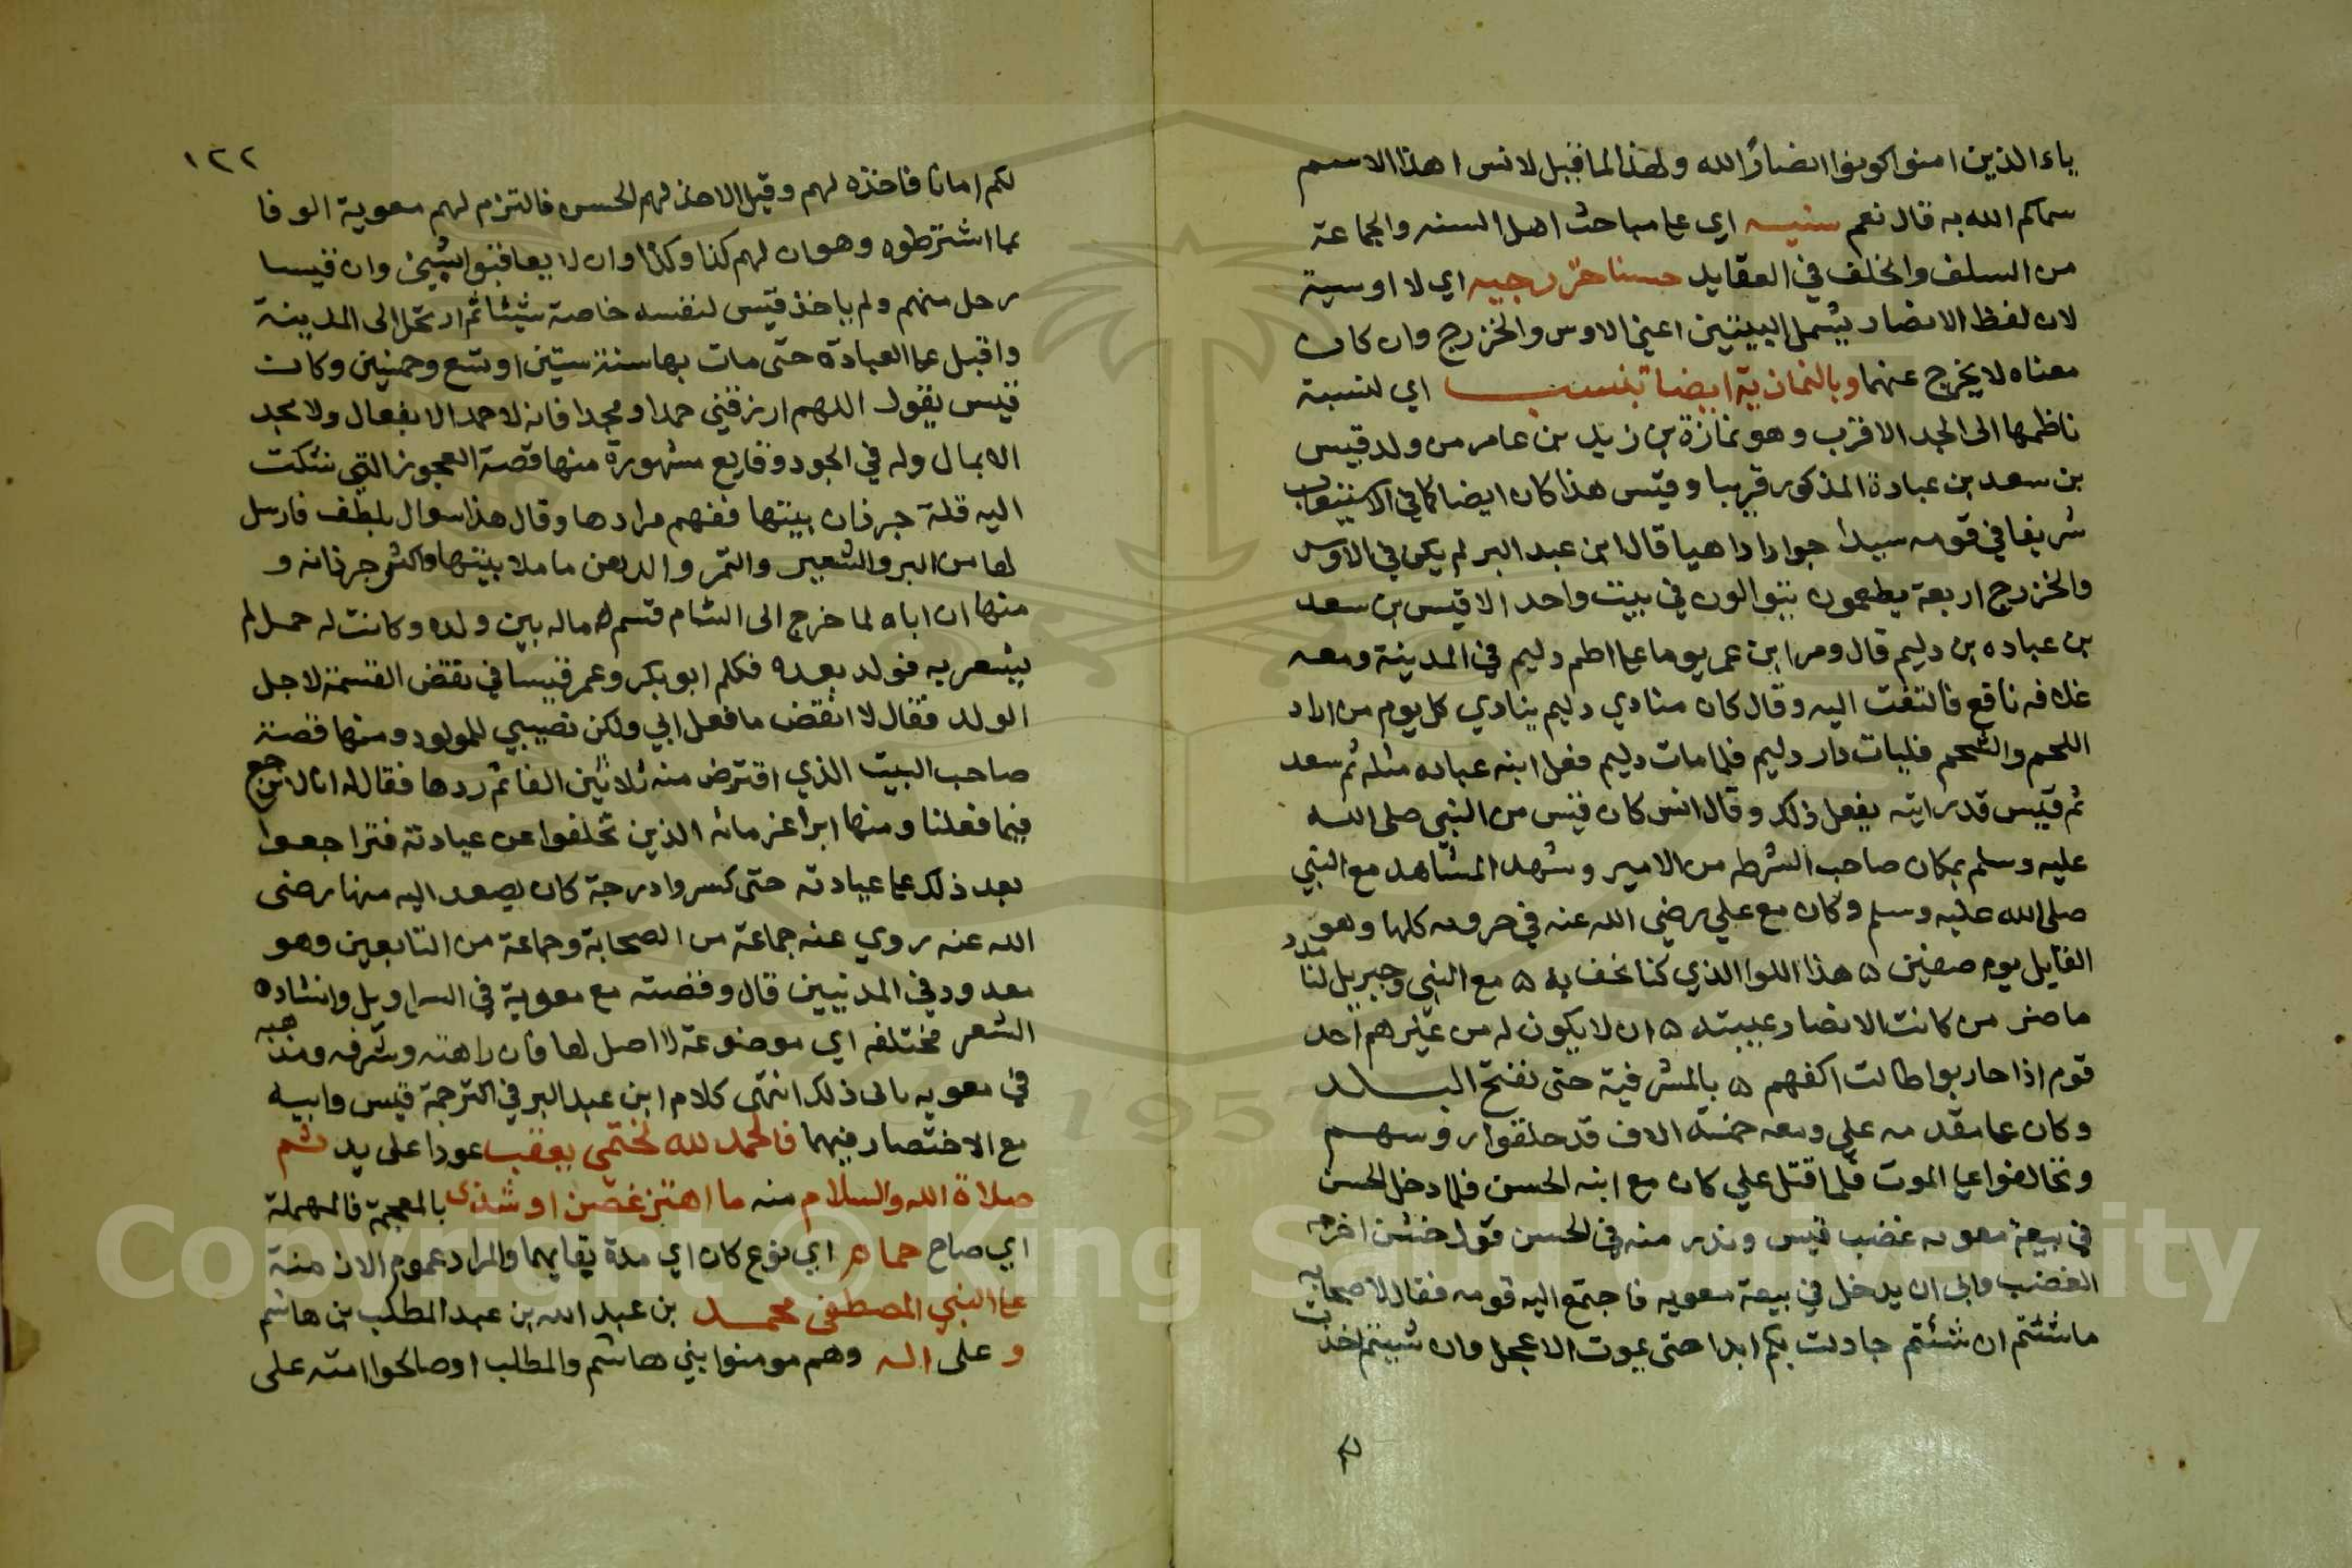 ياء الذين امنوا كونوا انصارا لله ولهذا لما قيل لانس اهذا الاسم
سماكم الله به قال نعم سنيه اي على مباحث اهل السنه والجماعة
من السلف والخلف في العقايد حسنا خزرجيه اي لا اوسية
لان لفظ الانصار يشمل البيتين اعني الاوس والخزرج وان كان
معناه لا يخرج عنهما ايضا تنسب اي لنسبة
ناظمها الى الجد الاقرب وهو بن زيد بن عامر من ولد قيس
بن سعد بن عبادة المذكور قريبا وقيس هذا كان ايضا كما في الاستيعاب
شريفا في قومه سيدا جوادا داهيا قال ابن عبد البر لم يكن في الاوس
والخزرج اربعة يطعمون يتوالون في بيت واحد الا قيس بن سعد
بن عباده بن دليم قال ومر ابن عمر يوما على اطم دليم في المدينة ومعه
نافع فالتفت اليه وقال كان منادي دليم ينادي كل يوم من اراد
اللحم والشحم فليات دار دليم فلما مات دليم فعل ابنه عباده مثله ثم سعد
ثم قيس قد رايته يفعل ذلك وقال انس كان قيس من النبي صلى الله
عليه وسلم بمكان صاحب الشرطه من الامير وشهد المشاهد مع النبي
صلى الله عليه وسلم وكان مع علي رضي الله عنه في حروبه كلها وهو
القايل يوم صفين ه هذا اللوا الذي كنا نحف به ه مع النبي وجبريل لنا مدد
ما ضر من كانت الانصار عيبته ه ان لا يكون له من غيرهم احد
قوم اذا حاربوا طالت اكفهم ه بالمشرفية حتى تفتح البلد
وكان على مقدمه علي ومعه خمسة الاف قد حلقوا روسهم
وتحالفوا على الموت فلما قتل علي كان مع ابنه الحسن فلما دخل الحسن
في بيعة معويه غضب قيس وندر منه في الحسن قول خشن اخرجه
الغضب وابى ان يدخل في بيعة معويه فاجتمع اليه قومه فقال لاصحابه
ما شئتم ان شئتم جادلت بكم ابدا حتى يموت الاعجل وان شيتم اخذت
١٢٢
لكم امانا فاخذه لهم وقيل الاخذ لهم الحسن فالتزم لهم معوية الوفا
بما اشترطوه وهو ان لهم كذا وكذا وان لا يعاقبوا بشيئ وان قيسا
رجل منهم ولم ياخذ قيس لنفسه خاصة شيئا ثم ارتحل الى المدينة
واقبل على العبادة حتى مات بها سنة ستين او تسع وخمسين وكان
قيس يقول اللهم ارزقني حمدا ومجدا فانه لا حمد الا بفعال ولا مجد
الا بمال وله في الجود وقايع مشهورة منها قصة العجوز التي شكت
اليه قلة جرذان بيتها ففهم مرادها وقال هذا سوال بلطف فارسل
لها من البر والشعير والتمر والدهن ما ملا بيتها واكثر جرذانه و
منها ان اباه لما خرج الى الشام قسم ماله بين ولده وكانت له حمل لم
يشعر به فولد بعده فكلم ابو بكر وعمر قيسا في نقض القسمة لاجل
الولد فقال لا انقض ما فعل ابي ولكن نصيبي للمولود ومنها قصة
صاحب البيت الذي اقترض منه ثلاثين الفا ثم ردها فقال له انا لا نرجع
فيما فعلنا ومنها ابرا غرمائه الذين تخلفوا عن عيادته فتراجعوا
بعد ذلك على عيادته حتى كسروا درجة كان يصعد اليه منها رضي
الله عنه روي عنه جماعة من الصحابة وجماعة من التابعين وهو
معدود في المدنيين قال وقصته مع معوية في السراويل وانشاده
الشعر مختلفه اي موضوعة لا اصل لها فان نزاهته وشرفه ومذهبه
في معويه يابى ذلك انتهى كلام ابن عبد البر في الترجمة قيس وابيه
مع الاختصار فيهما فالحمد لله لختمي يعقب عودا على بدء ثم
صلاة الله والسلام منه ما اهتز غصن او شدى بالمعجمة فالمهملة
اي صاح حمام اي نوع كان اي مدة بقايهما والمراد عموم الازمنة
على النبي المصطفى محمد بن عبد الله بن عبد المطلب بن هاشم
وعلى اله وهم مومنوا بني هاشم والمطلب او صالحوا امته على
Copyright © King Saud University
1957